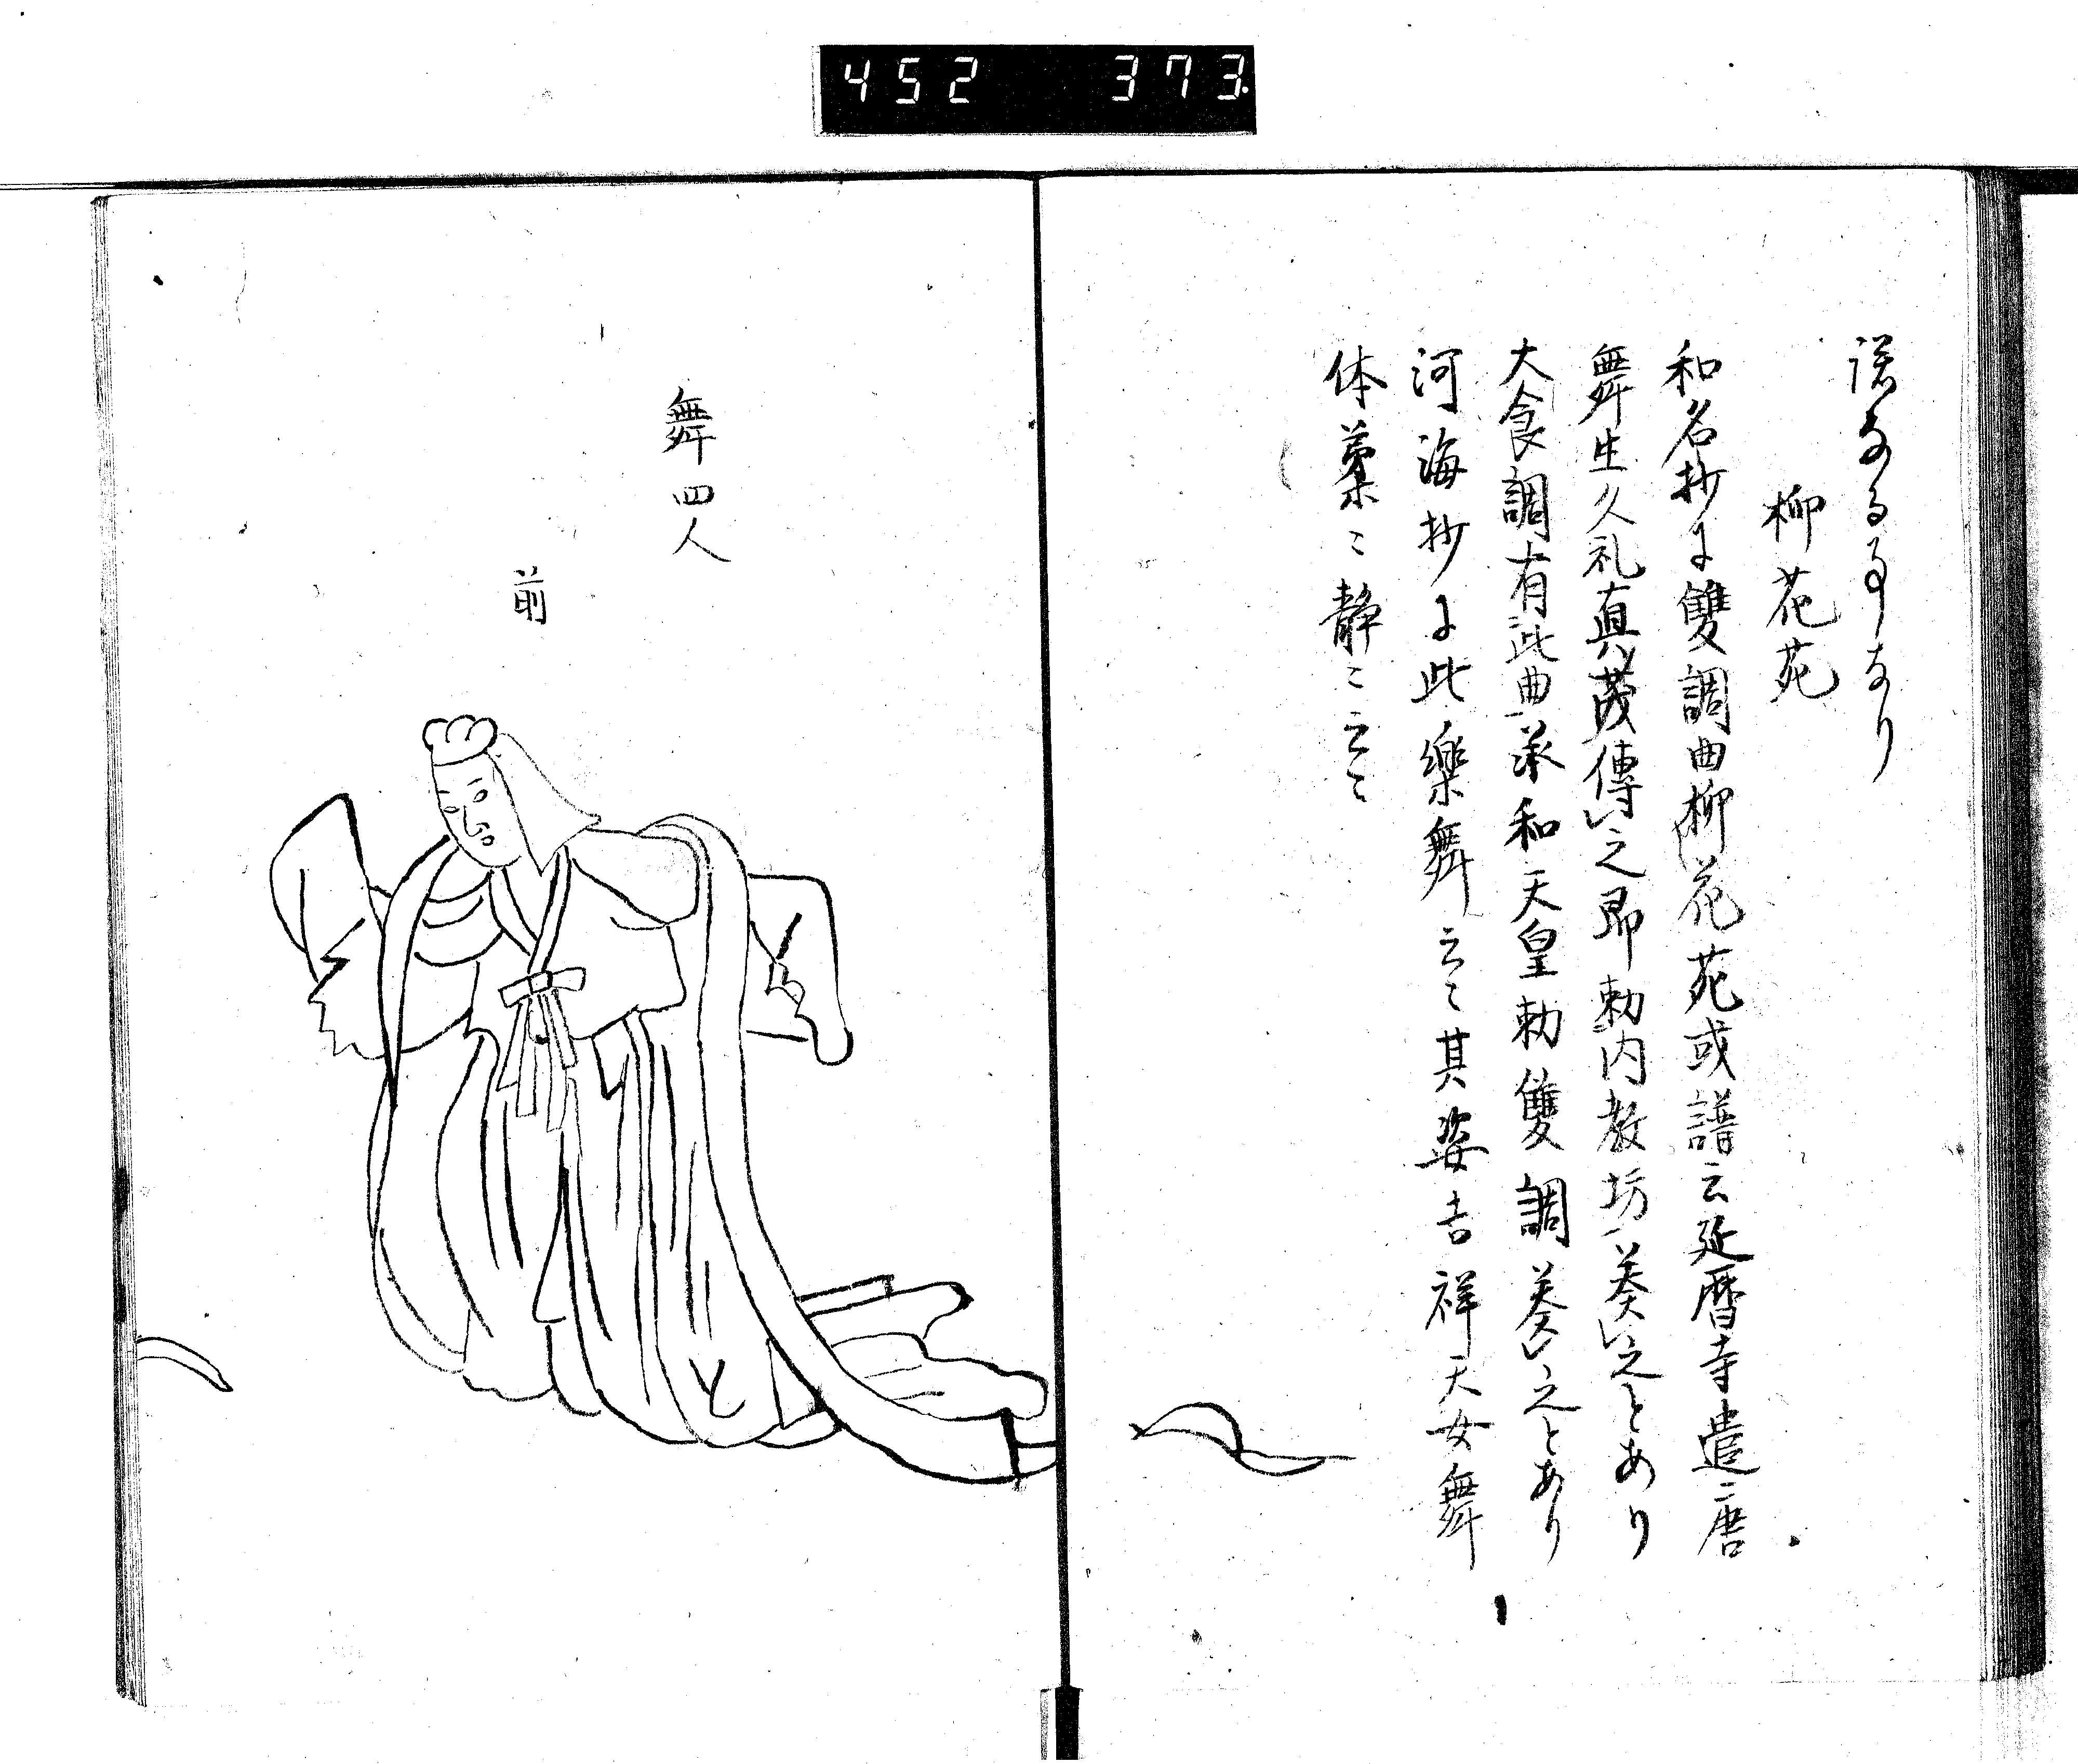 452 373
誤なる事なり
柳花苑
和名抄に雙調曲柳花苑或譜云延暦寺遣二唐
舞生久礼真茂傳レ之即勅内教坊一奏レ之とあり
大食調有此曲承和天皇勅雙調奏レ之とあり
河海抄に此樂舞云〻其姿吉祥天女舞
体〻静〻云〻
舞四人
前